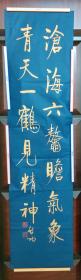 滄海六鰲瞻氣象
青天一鶴見精神
启功